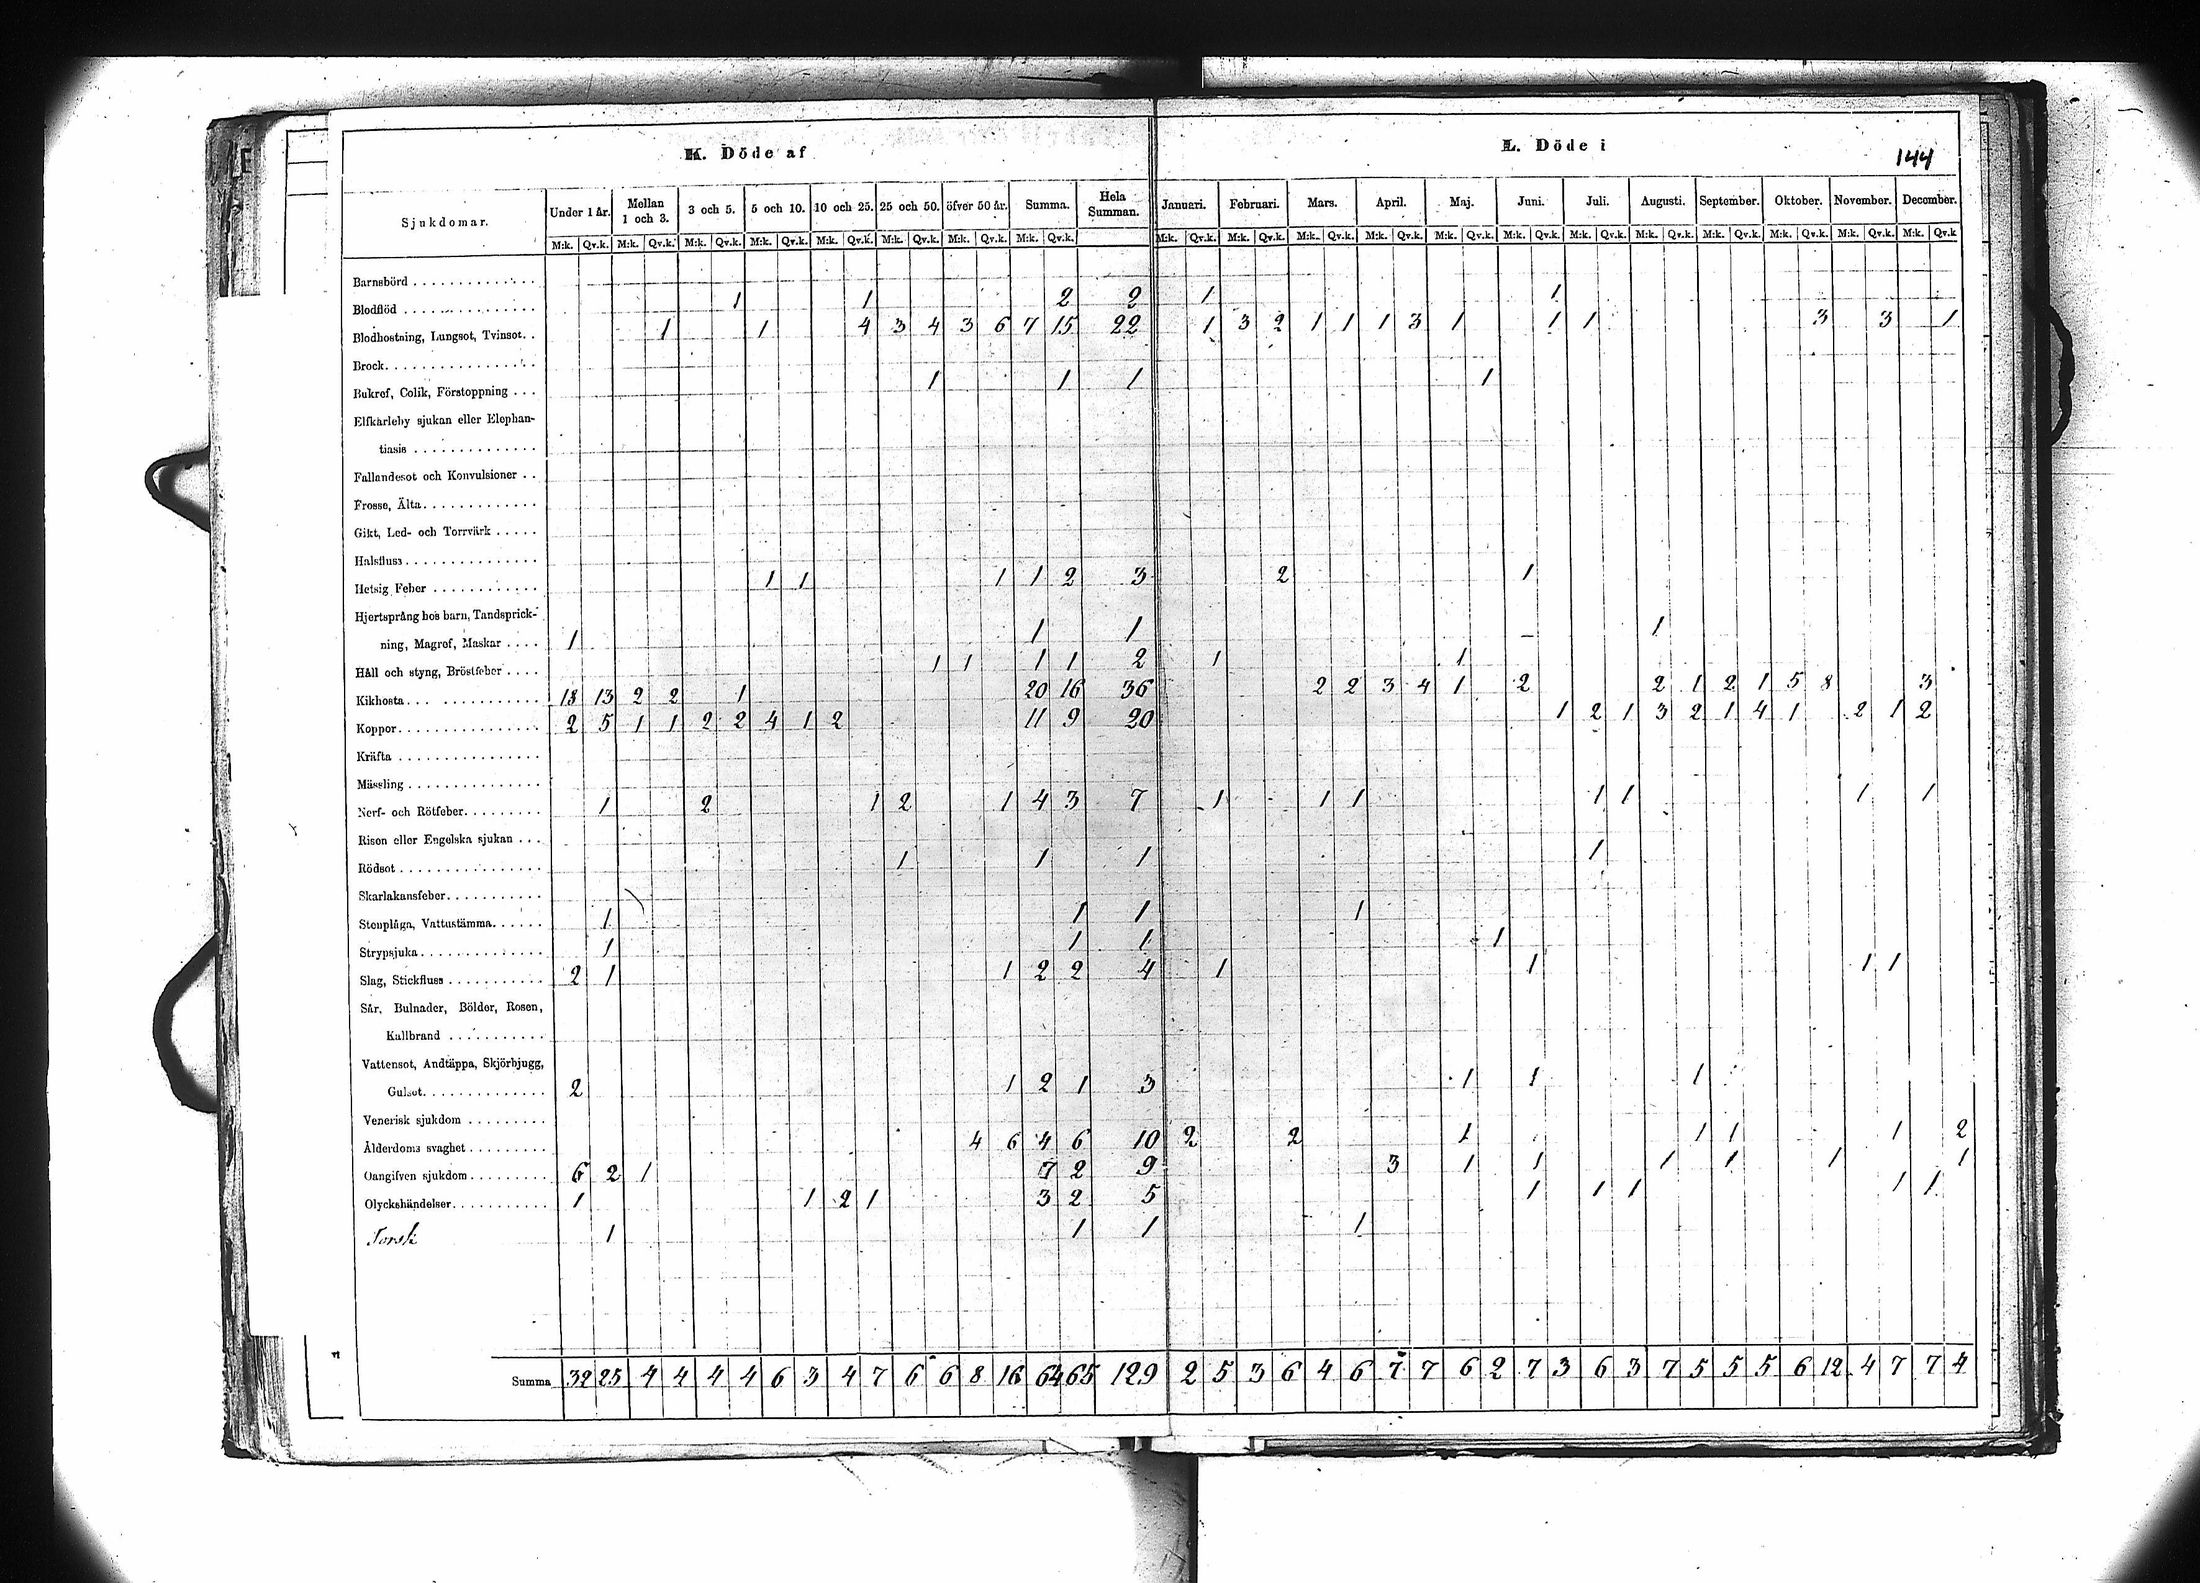 K. Döde af
L. Döde i
144
Sjukdomar.
Under 1 år. Mellan 1 och 3. 3 och 5. 5 och 10. 10 och 25. 25 och 50. öfver 50 år. Summa. Hela Summan. Januari. Februari. Mars. April. Maj. Juni. Juli. Augusti. September. Oktober. November. December.
M:k. Qv.k. M:k. Qv.k. M:k. Qv.k. M:k. Qv.k. M:k. Qv.k. M:k. Qv.k. M:k. Qv.k. M:k. Qv.k. M:k. Qv.k. M:k. Qv.k. M:k. Qv.k. M:k. Qv.k. M:k. Qv.k. M:k. Qv.k. M:k. Qv.k. M:k. Qv.k. M:k. Qv.k. M:k. Qv.k. M:k. Qv.k. M:k. Qv.k
Barnsbörd
Blodflöd 1 1 2 2 1 1
Blodhostning, Lungsot, Tvinsot. 1 1 4 3 4 3 6 7 15 22 1 3 2 1 1 1 3 1 1 1 3 3 1
Brock
Bukref, Colik, Förstoppning 1 1 1 1
Elfkarleby sjukan eller Elephan-
tiasis
Fallandesot och Konvulsioner
Frosse, Älta
Gikt, Led- och Torrvärk
Halsfluss
Hetsig Feber 1 1 1 1 2 3 2 1
Hjertsprång hos barn, Tandsprick-
ning, Magref, Maskar 1 1 1 1
Håll och styng, Bröstfeber 1 1 1 1 2 1 1
Kikhosta 18 13 2 2 1 20 16 36 2 2 3 4 1 2 2 1 2 1 5 8 3
Koppor 2 5 1 1 2 2 4 1 2 11 9 20 1 2 1 3 2 1 4 1 2 1 2
Kräfta
Mässling
Nerf- och Rötfeber 1 2 1 2 1 4 3 7 1 1 1 1 1 1 1
Risen eller Engelska sjukan
Rödsot 1 1 1 1
Skarlakansfeber
Stenplåga, Vattustämma 1 1 1 1
Strypsjuka 1 1 1 1
Slag, Stickfluss 2 1 1 2 2 4 1 1 1 1
Sår, Bulnader, Bölder, Rosen,
Kallbrand
Vattensot, Andtäppa, Skjörbjugg,
Gulsot 2 1 2 1 3 1 1 1
Venerisk sjukdom
Ålderdoms svaghet 4 6 4 6 10 2 2 1 1 1 1 2
Oangifven sjukdom 6 2 1 7 2 9 3 1 1 1 1 1 1
Olyckshändelser 1 1 2 1 3 2 5 1 1 1 1 1
Torsk 1 1 1 1
Summa 32 25 4 4 4 4 6 3 4 7 6 6 8 16 64 65 129 2 5 3 6 4 6 7 7 6 2 7 3 6 3 7 5 5 5 6 12 4 7 7 4